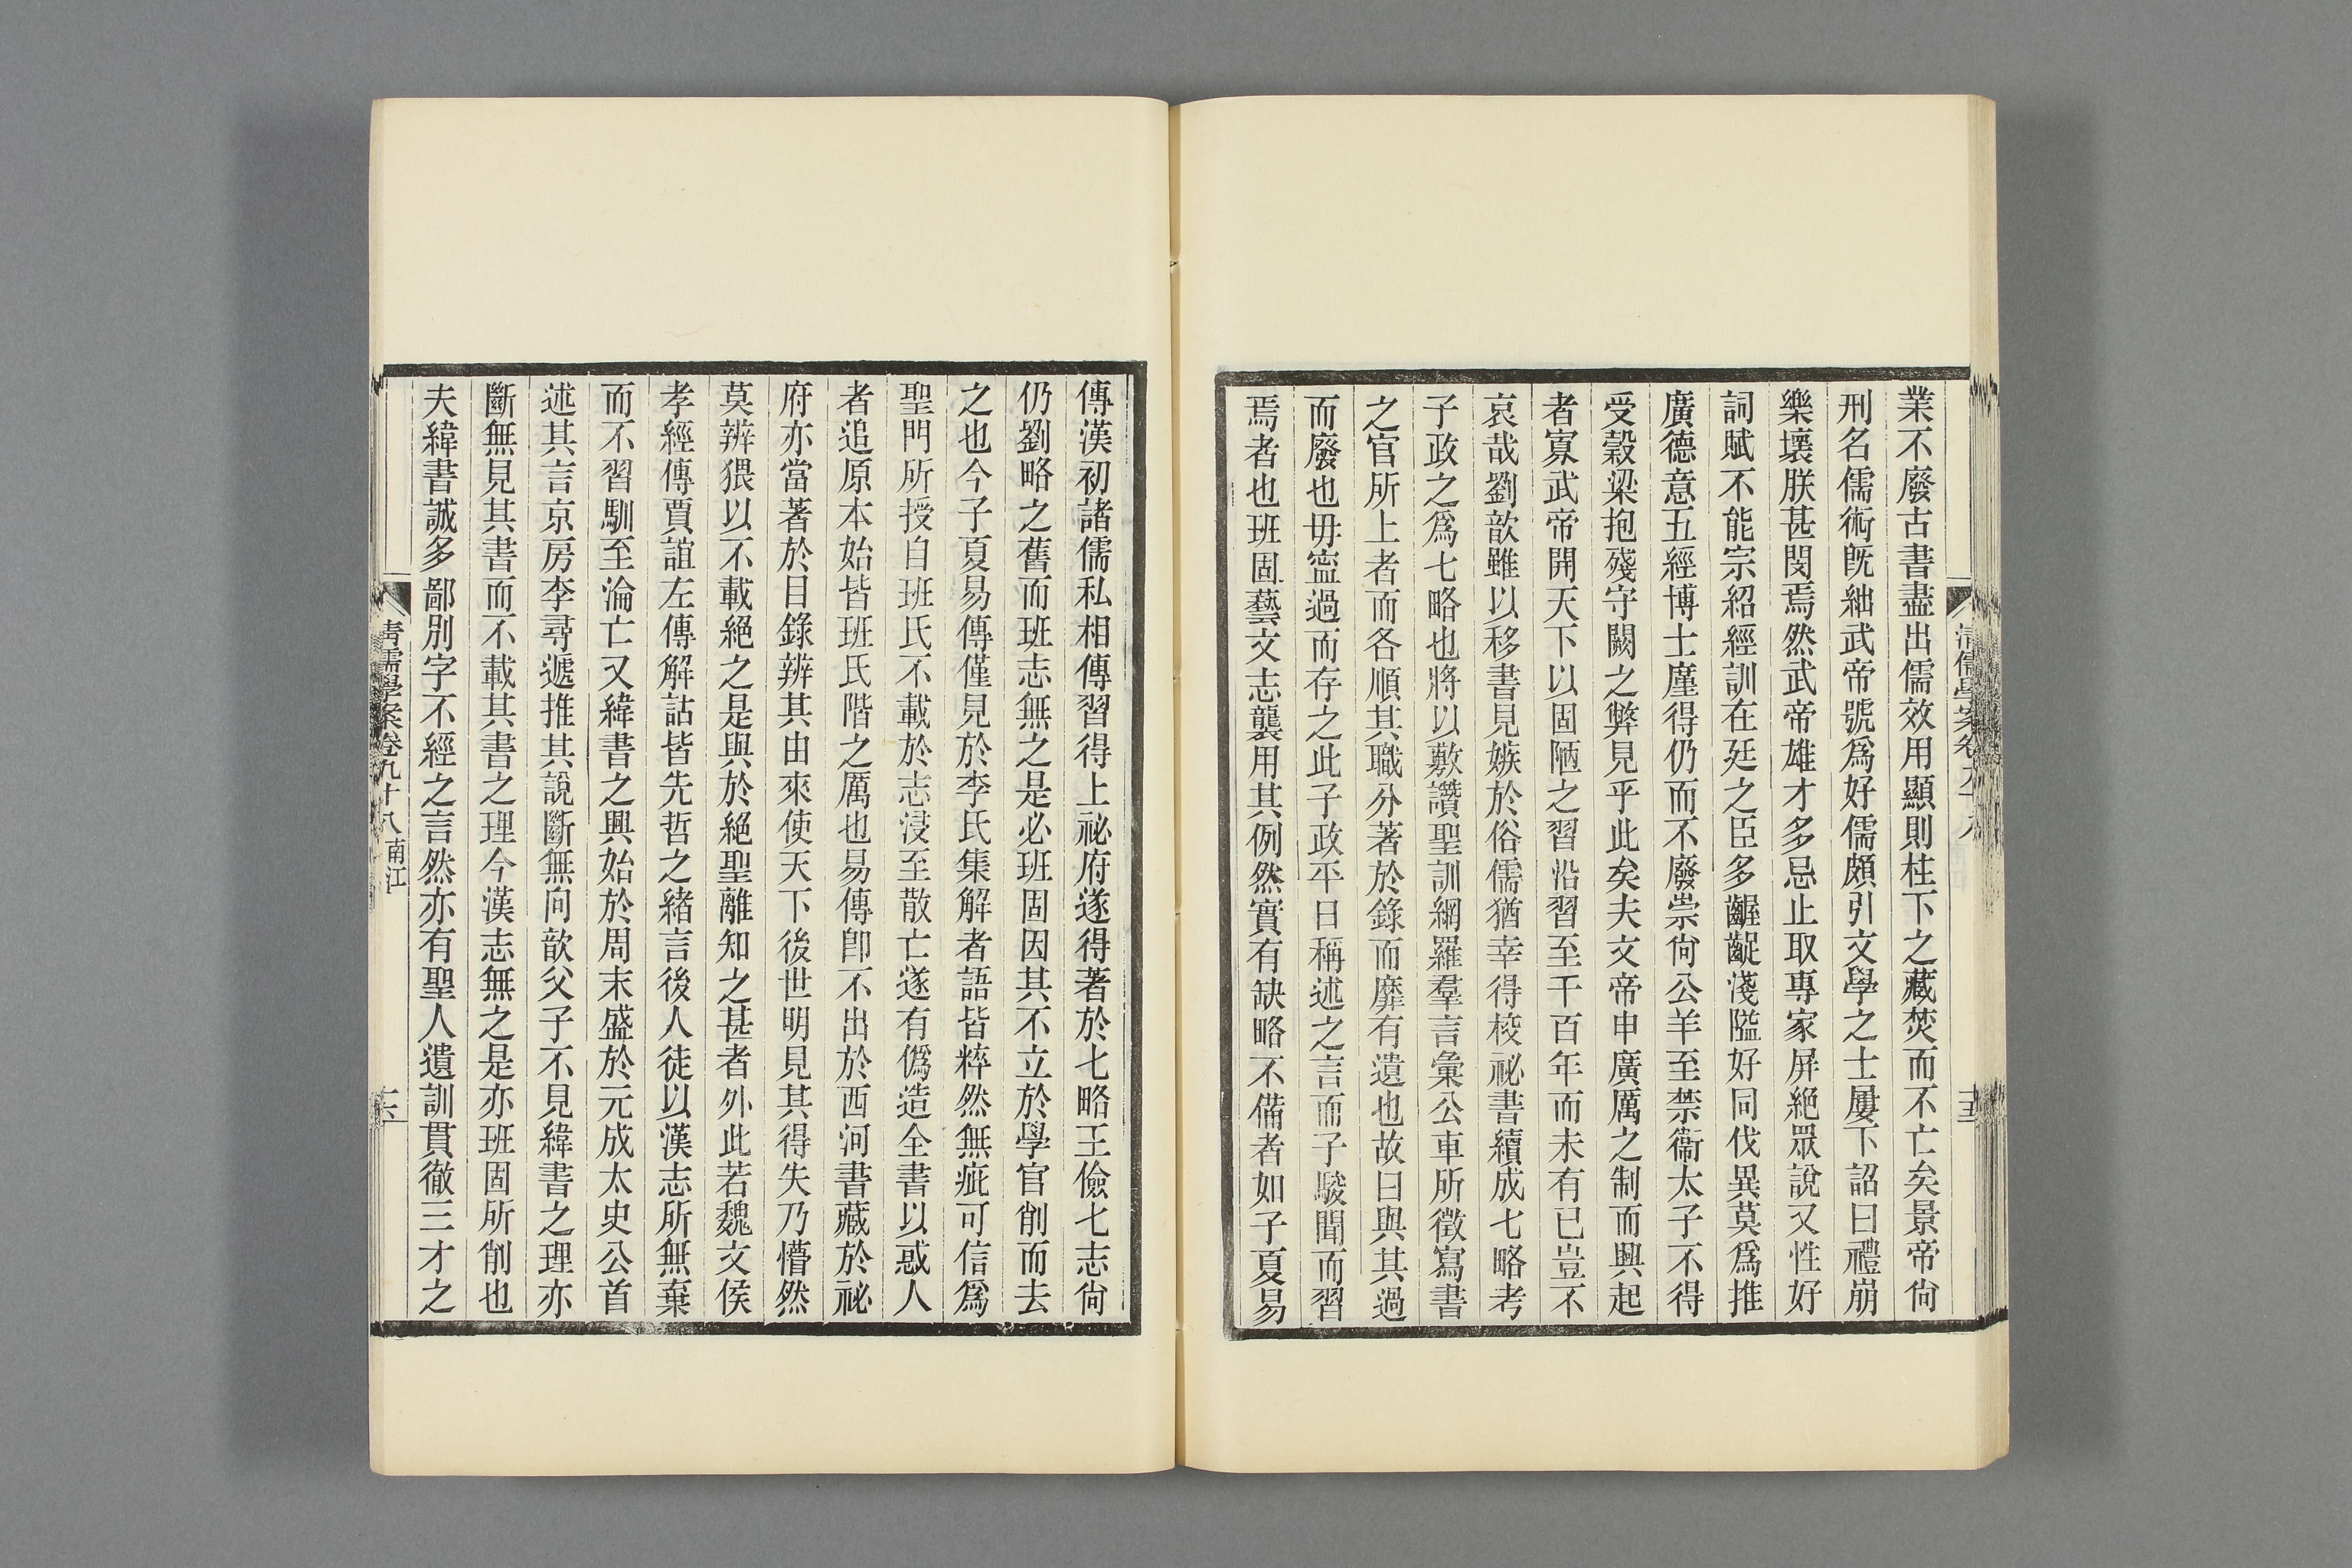 業不廢古書盡出儒效用顯則柱下之藏焚而不亡矣景帝尙
刑名儒術旣絀武帝號爲好儒頗引文學之士屢下詔曰禮崩
樂壞朕甚閔焉然武帝雄才多忌止取專家屏絕眾說又性好
詞賦不能宗紹經訓在廷之臣多齷齪淺隘好同伐異莫爲推
廣德意五經博士廑得仍而不廢崇尙公羊至禁衞太子不得
受穀梁抱殘守闕之弊見乎此矣夫文帝申廣厲之制而興起
者寡武帝開天下以固陋之習沿習至千百年而未有已豈不
哀哉劉歆雖以移書見嫉於俗儒猶幸得校祕書續成七略考
子政之爲七略也將以敷讚聖訓網羅羣言彙公車所徵寫書
之官所上者而各順其職分著於錄而靡有遺也故曰與其過
而廢也毋寍過而存之此子政平日稱述之言而子駿聞而習
焉者也班固藝文志襲用其例然實有缺略不備者如子夏易
清儒學案卷九十八
十五
傳漢初諸儒私相傳習得上祕府遂得著於七略王儉七志尙
仍劉略之舊而班志無之是必班固因其不立於學官削而去
之也今子夏易傳僅見於李氏集解者語皆粹然無疵可信爲
聖門所授自班氏不載於志浸至散亡遂有僞造全書以惑人
者追原本始皆班氏階之厲也易傳卽不出於西河書藏於祕
府亦當著於目錄辨其由來使天下後世明見其得失乃懵然
莫辨猥以不載絕之是與於絕聖離知之甚者外此若魏文侯
孝經傳賈誼左傳解詁皆先哲之緒言後人徒以漢志所無棄
而不習馴至淪亡又緯書之興始於周末盛於元成太史公首
述其言京房李尋遞推其說斷無向歆父子不見緯書之理亦
斷無見其書而不載其書之理今漢志無之是亦班固所削也
夫緯書誠多鄙別字不經之言然亦有聖人遺訓貫徹三才之
清儒學案卷九十八 南江
十六